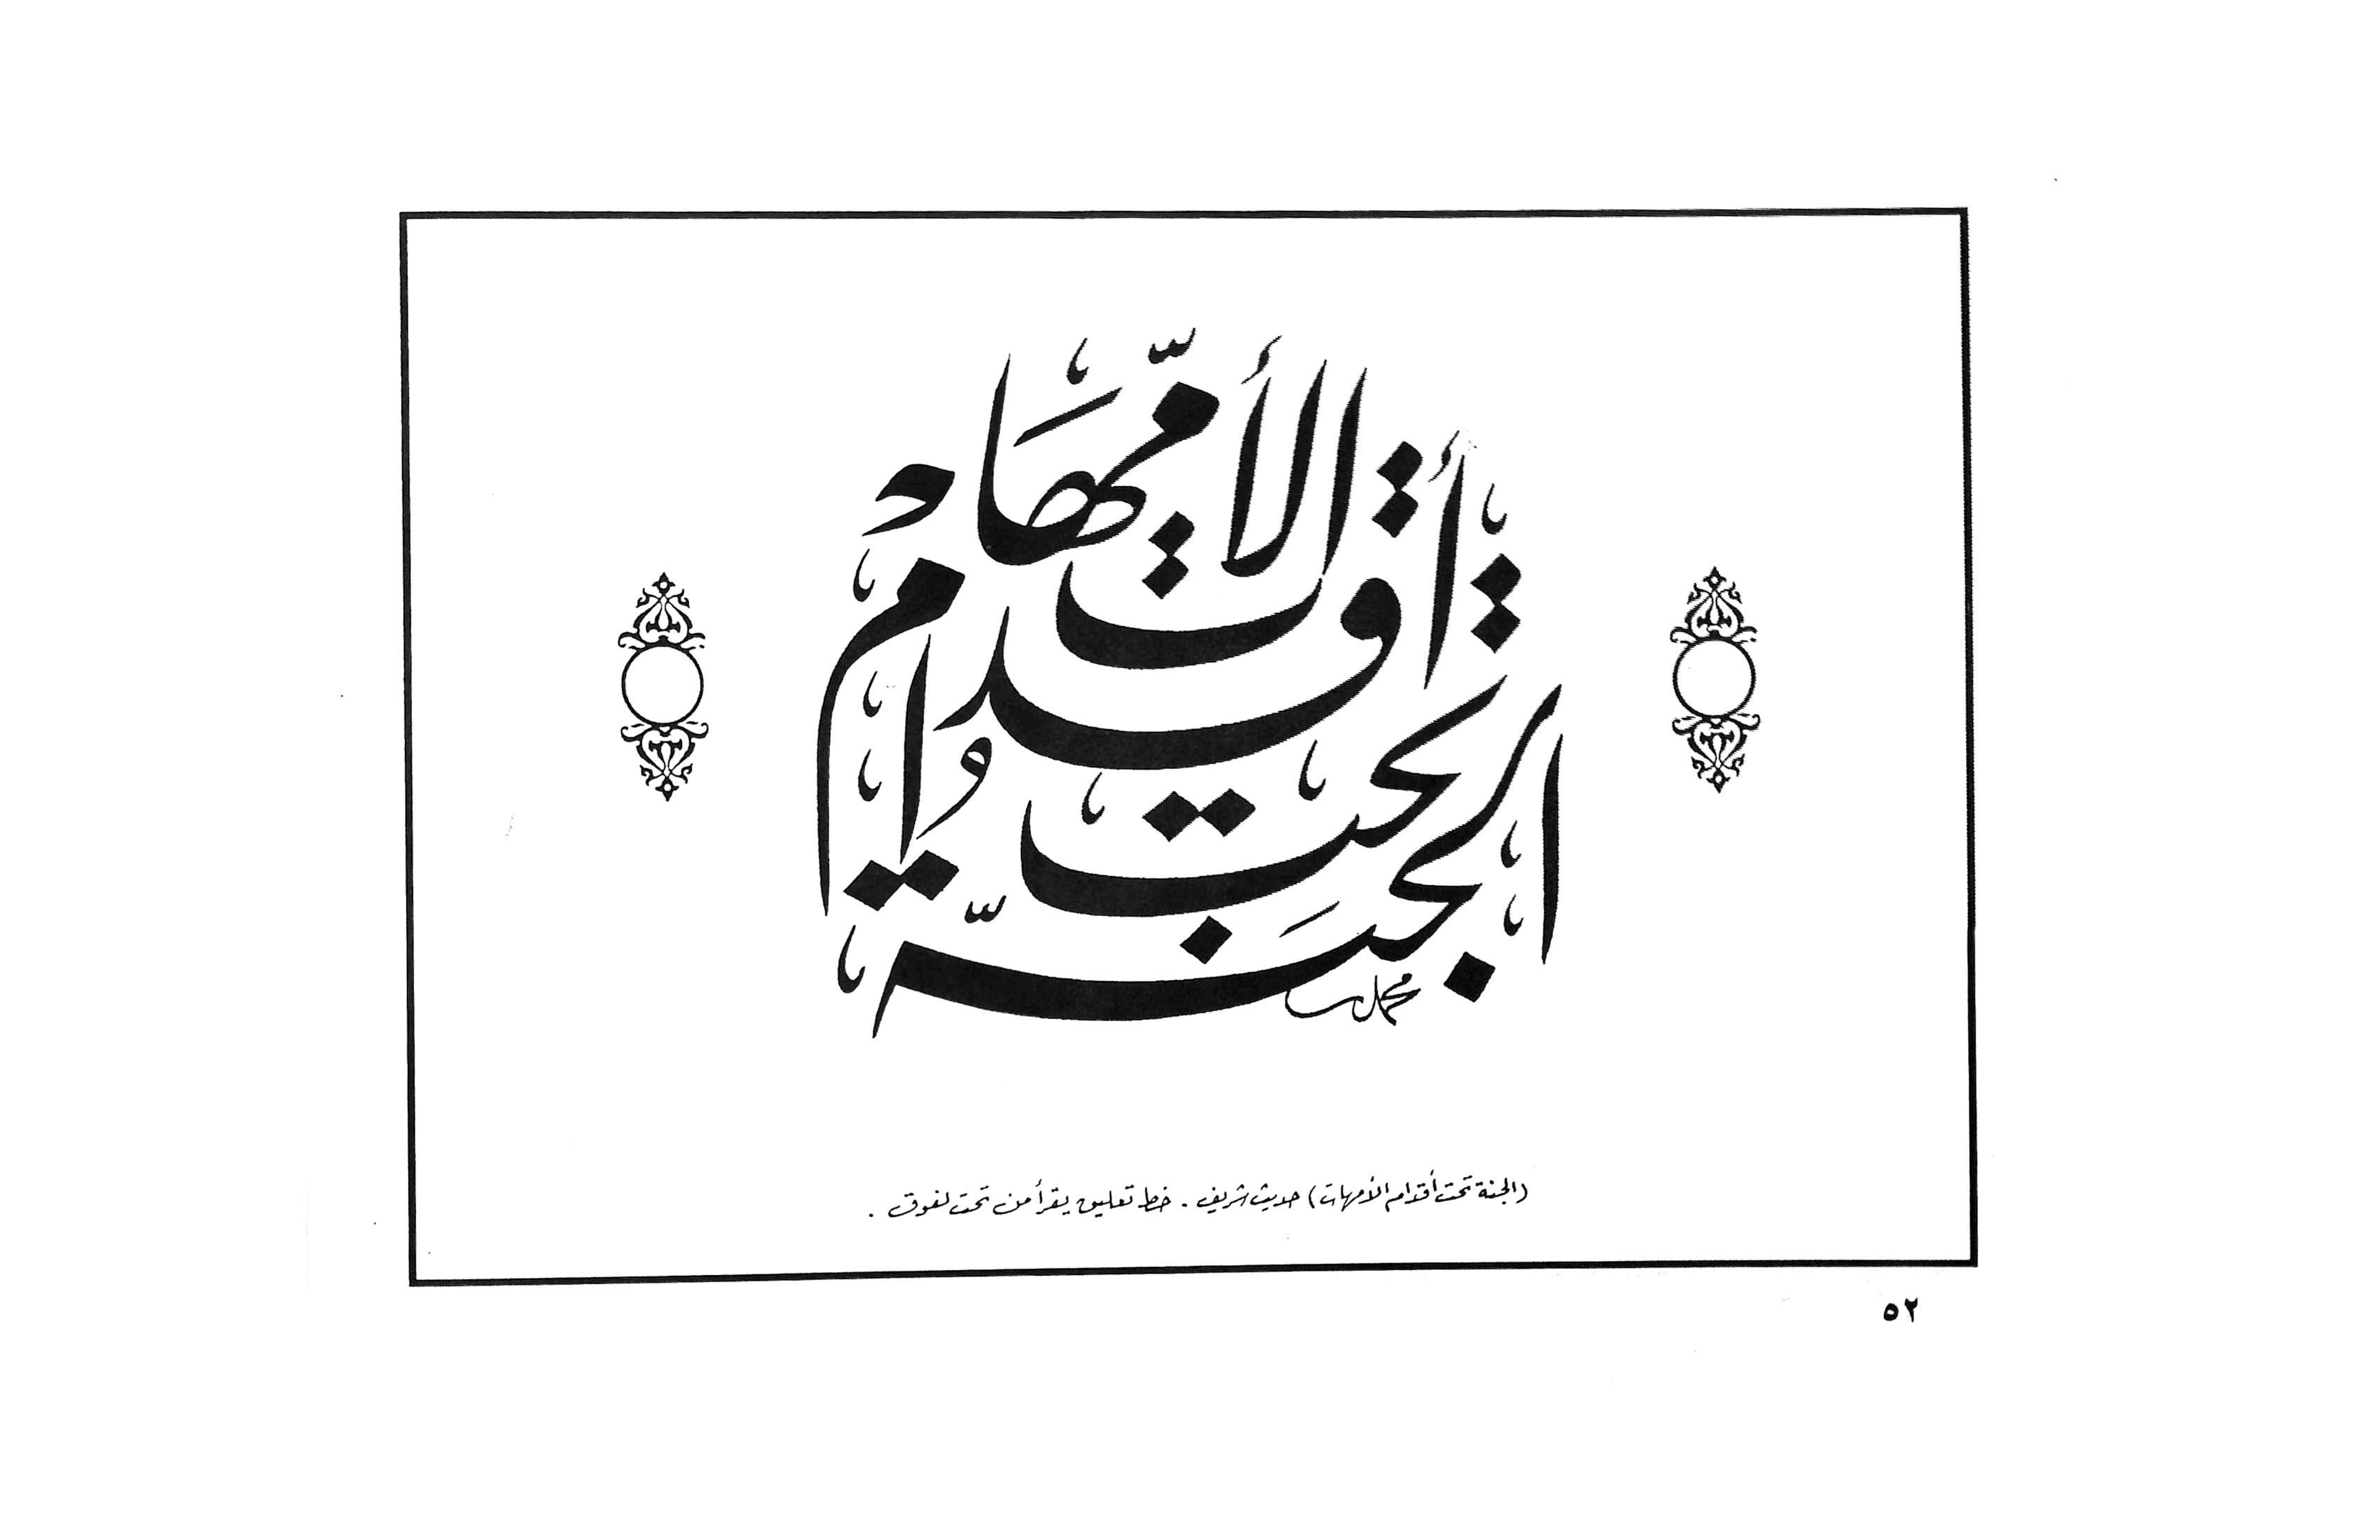 الجنة تحت أقدام الأمهات
محمد
(الجنة تحت أقدام الأمهات) حديث شريف . خط تعليق يقرأ من تحت لفوق .
٥٢